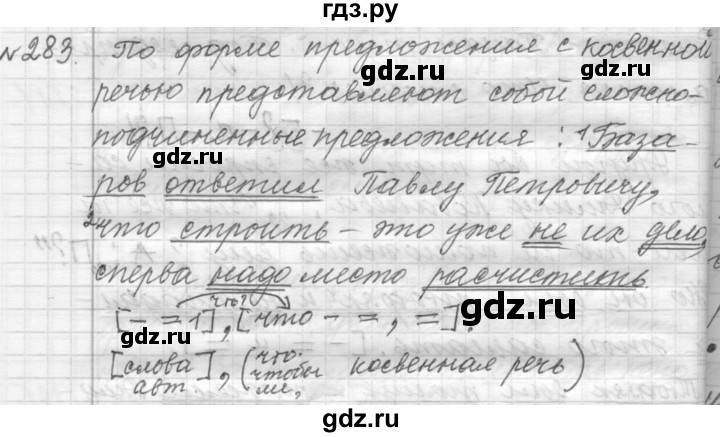 гдз.ру
№283. По форме предложения с косвенной
речью представляют собой сложно-
подчиненные предложения: ¹База-
ров ответил Павлу Петровичу,
²что строить – это уже не их дело,
сперва надо место расчистить
что?
[– = 1], [что – = , =].
[слова авт.], (что, чтобы ли, косвенная речь)
gdz.ru
gdz.ru
gdz.ru
gdz.ru
gdz.ru
gdz.ru
gdz.ru
gdz.ru